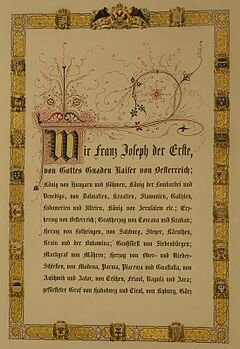 Wir Franz Joseph der Erste,
von Gottes Gnaden Kaiser von Oesterreich;
König von Hungarn und Böhmen, König der Lombardei und
Venedigs, von Dalmatien, Kroatien, Slawonien, Galizien,
Lodomerien und Illirien, König von Jerusalem etc.; Erz-
herzog von Oesterreich; Grossherzog von Toscana und Krakau;
Herzog von Lothringen, von Salzburg, Steyer, Kärnthen,
Krain und der Bukowina; Grossfürst von Siebenbürgen;
Markgraf von Mähren; Herzog von Ober- und Nieder-
Schlesien, von Modena, Parma, Piacenza und Guastalla, von
Auschwitz und Zator, von Teschen, Friaul, Ragusa und Zara;
gefürsteter Graf von Habsburg und Tirol, von Kyburg, Görz